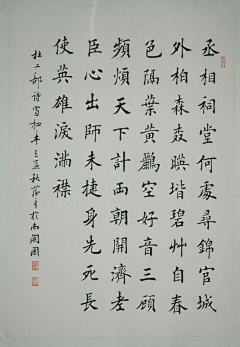 丞相祠堂何處尋錦官城
外柏森森暎堦碧艸自春
色隔葉黃鸝空好音三顧
頻煩天下計兩朝開濟老
臣心出師未捷身先死長
使英雄淚滿襟
杜工部詩